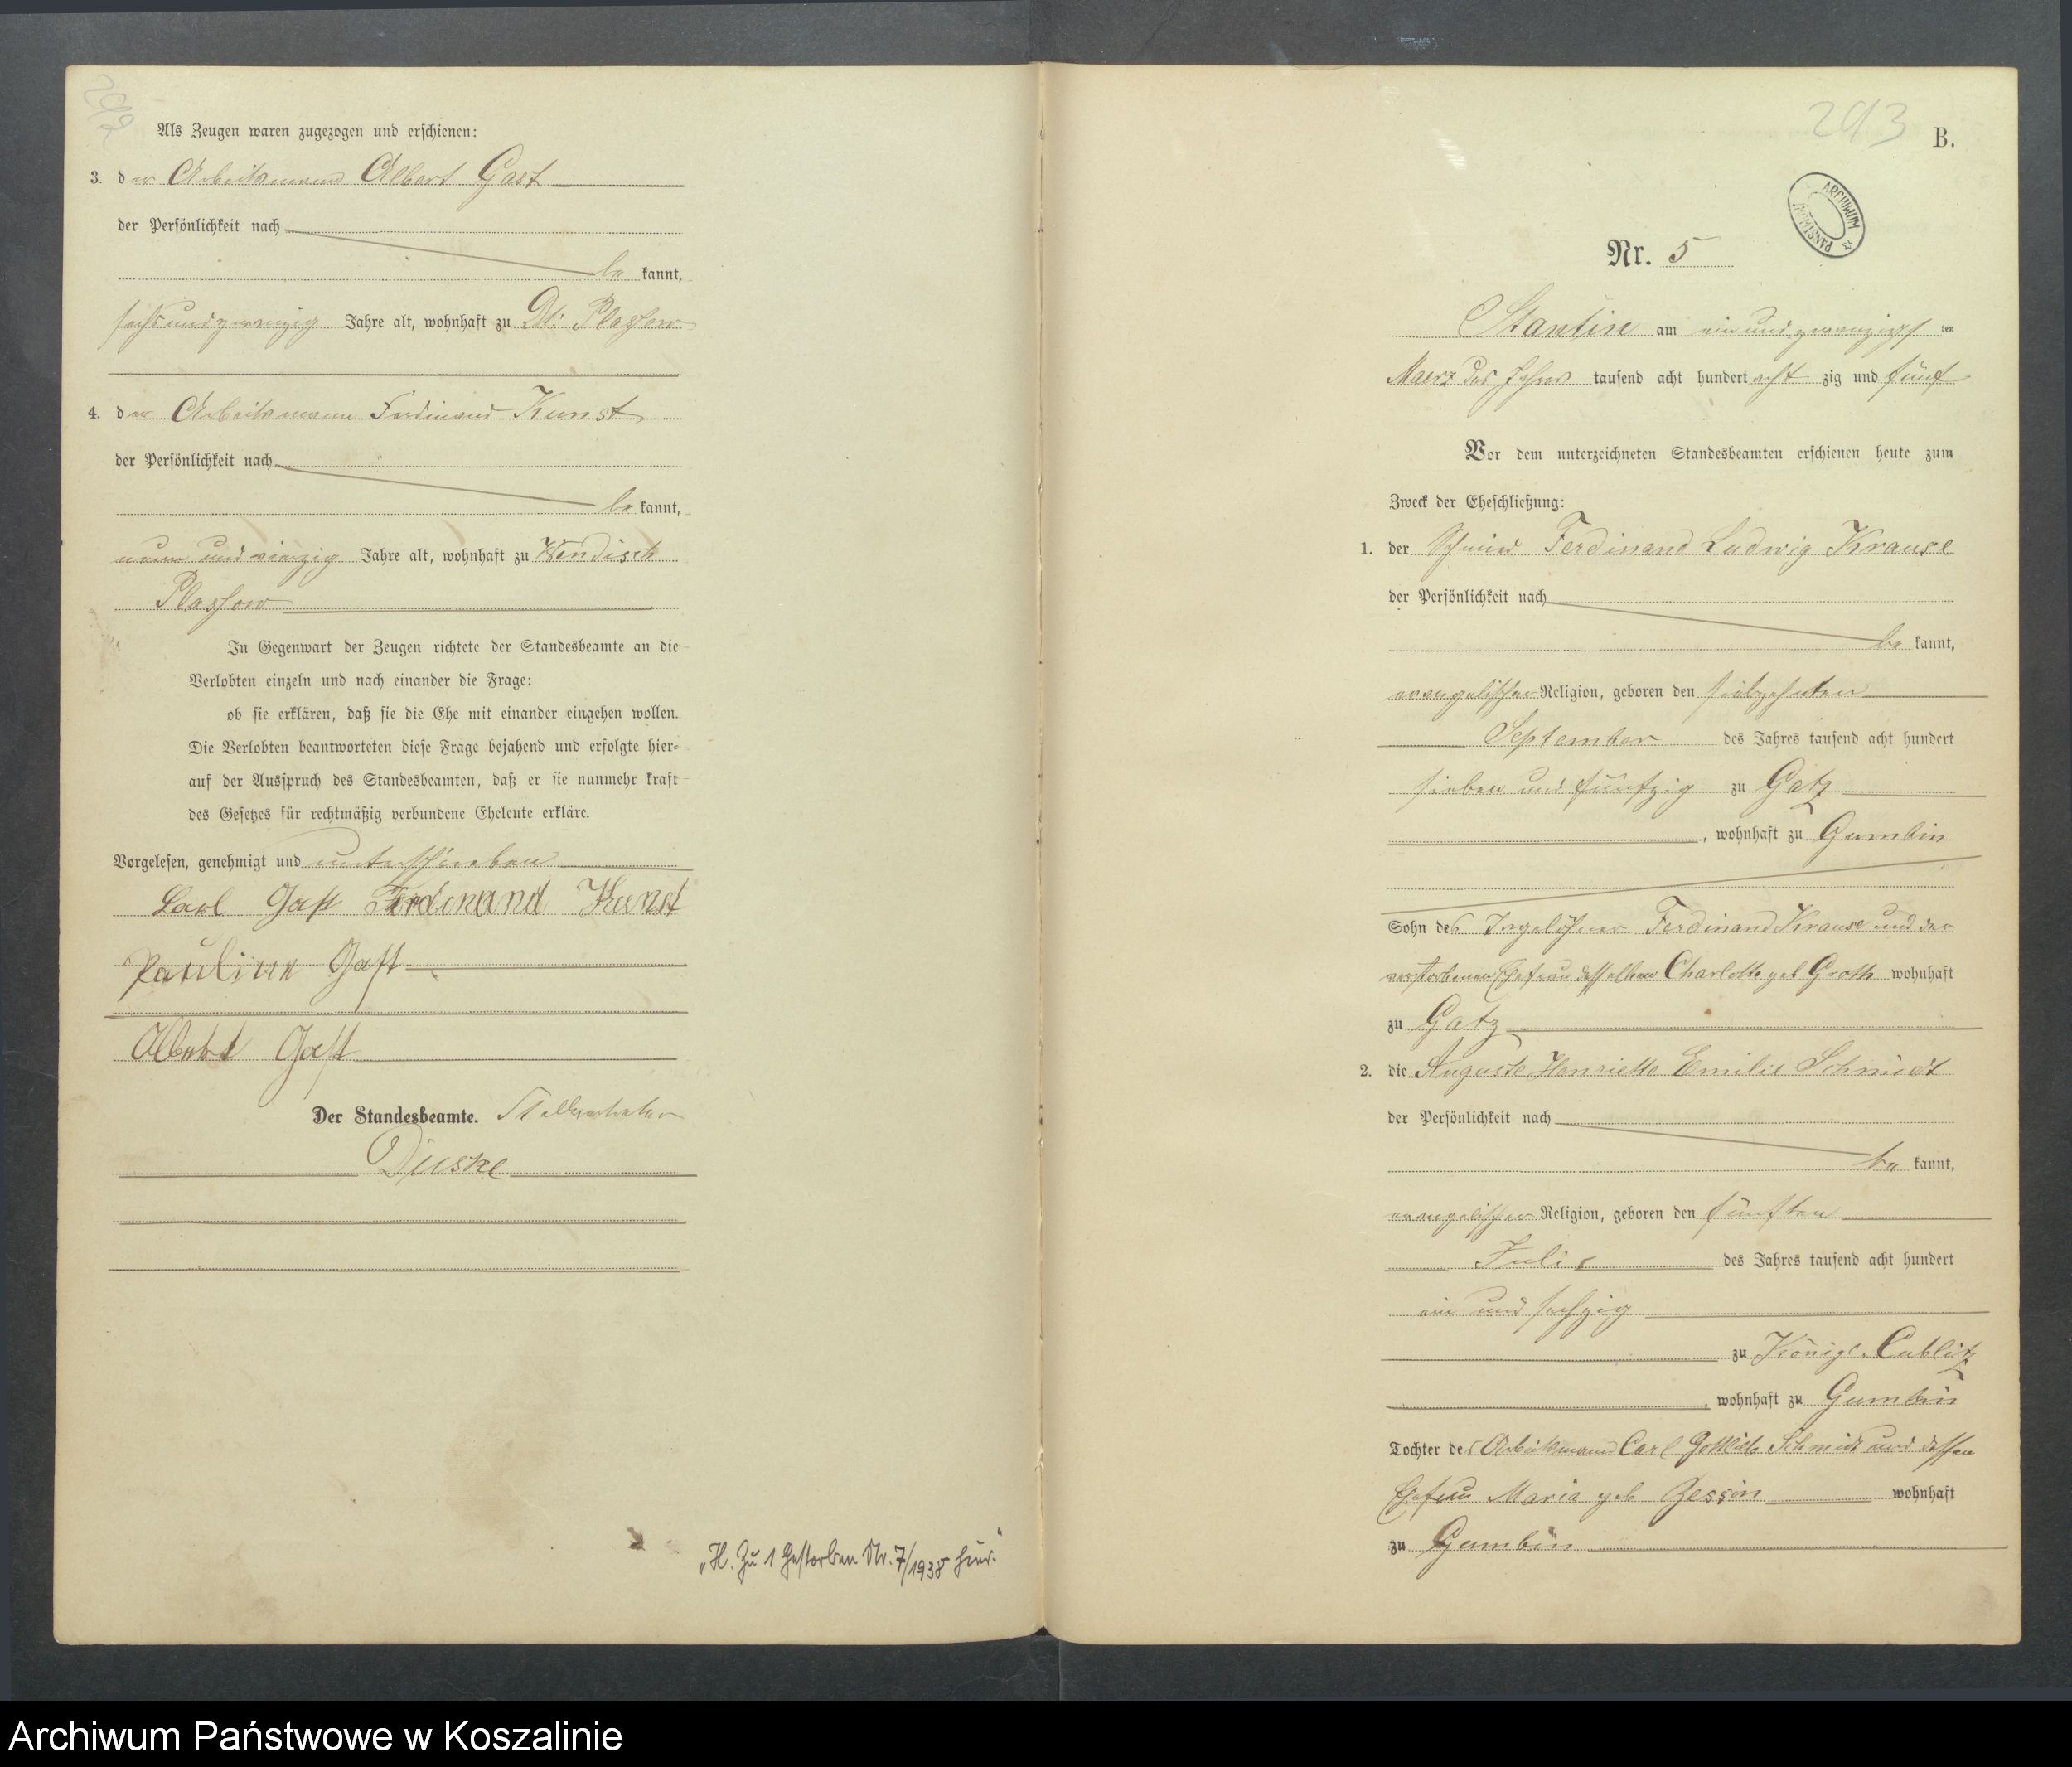 292
Als Zeugen waren zugezogen und erschienen:
3. der Arbeitsmann Albert Gast
der Persönlichkeit nach
bekannt,
sechsundzwanzig Jahre alt, wohnhaft zu Dt: Plassow
4. der Arbeitsmann Ferdinand Kunst
der Persönlichkeit nach
bekannt,
neun und vierzig Jahre alt, wohnhaft zu Wendisch
Plassow
In Gegenwart der Zeugen richtete der Standesbeamte an die
Verlobten einzeln und nach einander die Frage:
ob sie erklären, daß sie die Ehe mit einander eingehen wollen.
Die Verlobten beantworteten diese Frage bejahend und erfolgte hier=
auf der Ausspruch des Standesbeamten, daß er sie nunmehr kraft
des Gesetzes für rechtmäßig verbundene Eheleute erkläre.
Vorgelesen, genehmigt und unterschrieben
Carl Gast Ferdinand Kunst
Pauline Gast
Albert Gast
Der Standesbeamte. Stellvertreter
Duske
„H. Zu 1 Gestorben Nr. 7/1938 hier."
293
B.
ARCHIWUM PAŃSTWOWE
Nr. 5
Stantin am ein und zwanzigsten
Maerz des Jahres tausend acht hundert acht zig und fünf
Vor dem unterzeichneten Standesbeamten erschienen heute zum
Zweck der Eheschließung:
1. der Schmied Ferdinand Ludwig Krause
der Persönlichkeit nach
bekannt,
evangelischer Religion, geboren den siebzehnten
September des Jahres tausend acht hundert
sieben und fünfzig zu Gatz
, wohnhaft zu Gumbin
Sohn des Tagelöhner Ferdinand Krause und der
verstorbenen Ehefrau desselben Charlotte geb Groth wohnhaft
zu Gatz
2. die Auguste Henriette Emilie Schmidt
der Persönlichkeit nach
bekannt,
evangelischer Religion, geboren den fünften
Juli des Jahres tausend acht hundert
ein und sechzig
zu Königl. Cublitz
, wohnhaft zu Gumbin
Tochter des Arbeitsmann Carl Gottlieb Schmidt und dessen
Ehefrau Maria geb Zessin wohnhaft
zu Gumbin
Archiwum Państwowe w Koszalinie